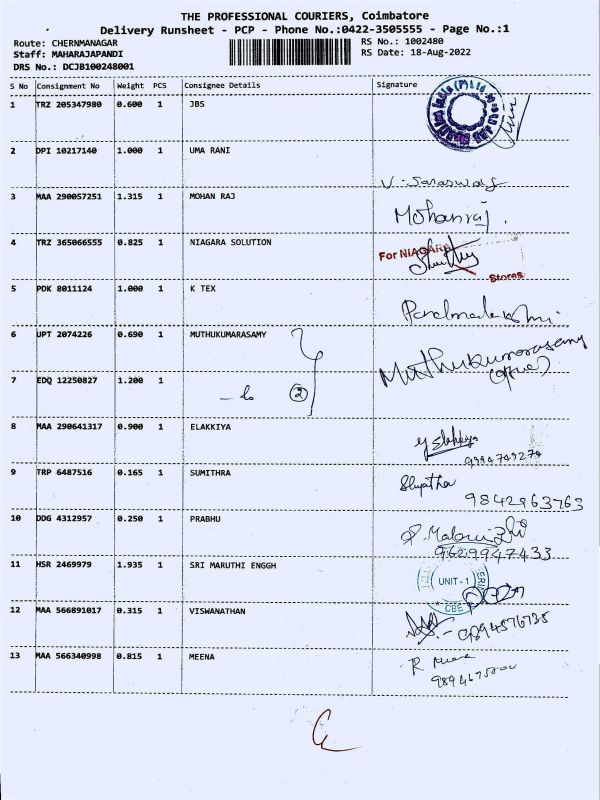 THE PROFESSIONAL COURIERS, Coimbatore
Delivery Runsheet - PCP - Phone No.:0422-3505555 - Page No.:1
Route: CHERNMANAGAR RS No.: 1002480
Staff: MAHARAJAPANDI RS Date: 18-Aug-2022
DRS No.: DCJB100248001
S No Consignment No Weight PCS Consignee Details Signature
1 TRZ 205347980 0.600 1 JBS
2 DPI 10217140 1.000 1 UMA RANI
V. Saraswathy
3 MAA 290057251 1.315 1 MOHAN RAJ
Mohanraj.
4 TRZ 365066555 0.825 1 NIAGARA SOLUTION
For NIAGARA
Stores
5 PDK 8011124 1.000 1 K TEX
6 UPT 2074226 0.690 1 MUTHUKUMARASAMY
Muthukumarasamy
7 EDQ 12250827 1.200 1
2
8 MAA 290641317 0.900 1 ELAKKIYA
9994749274
9 TRP 6487516 0.165 1 SUMITHRA
9842963763
10 DDG 4312957 0.250 1 PRABHU
9629947433
11 HSR 2469979 1.935 1 SRI MARUTHI ENGGH
UNIT - 1
CBE
12 MAA 566891017 0.315 1 VISWANATHAN
13 MAA 566340998 0.815 1 MEENA